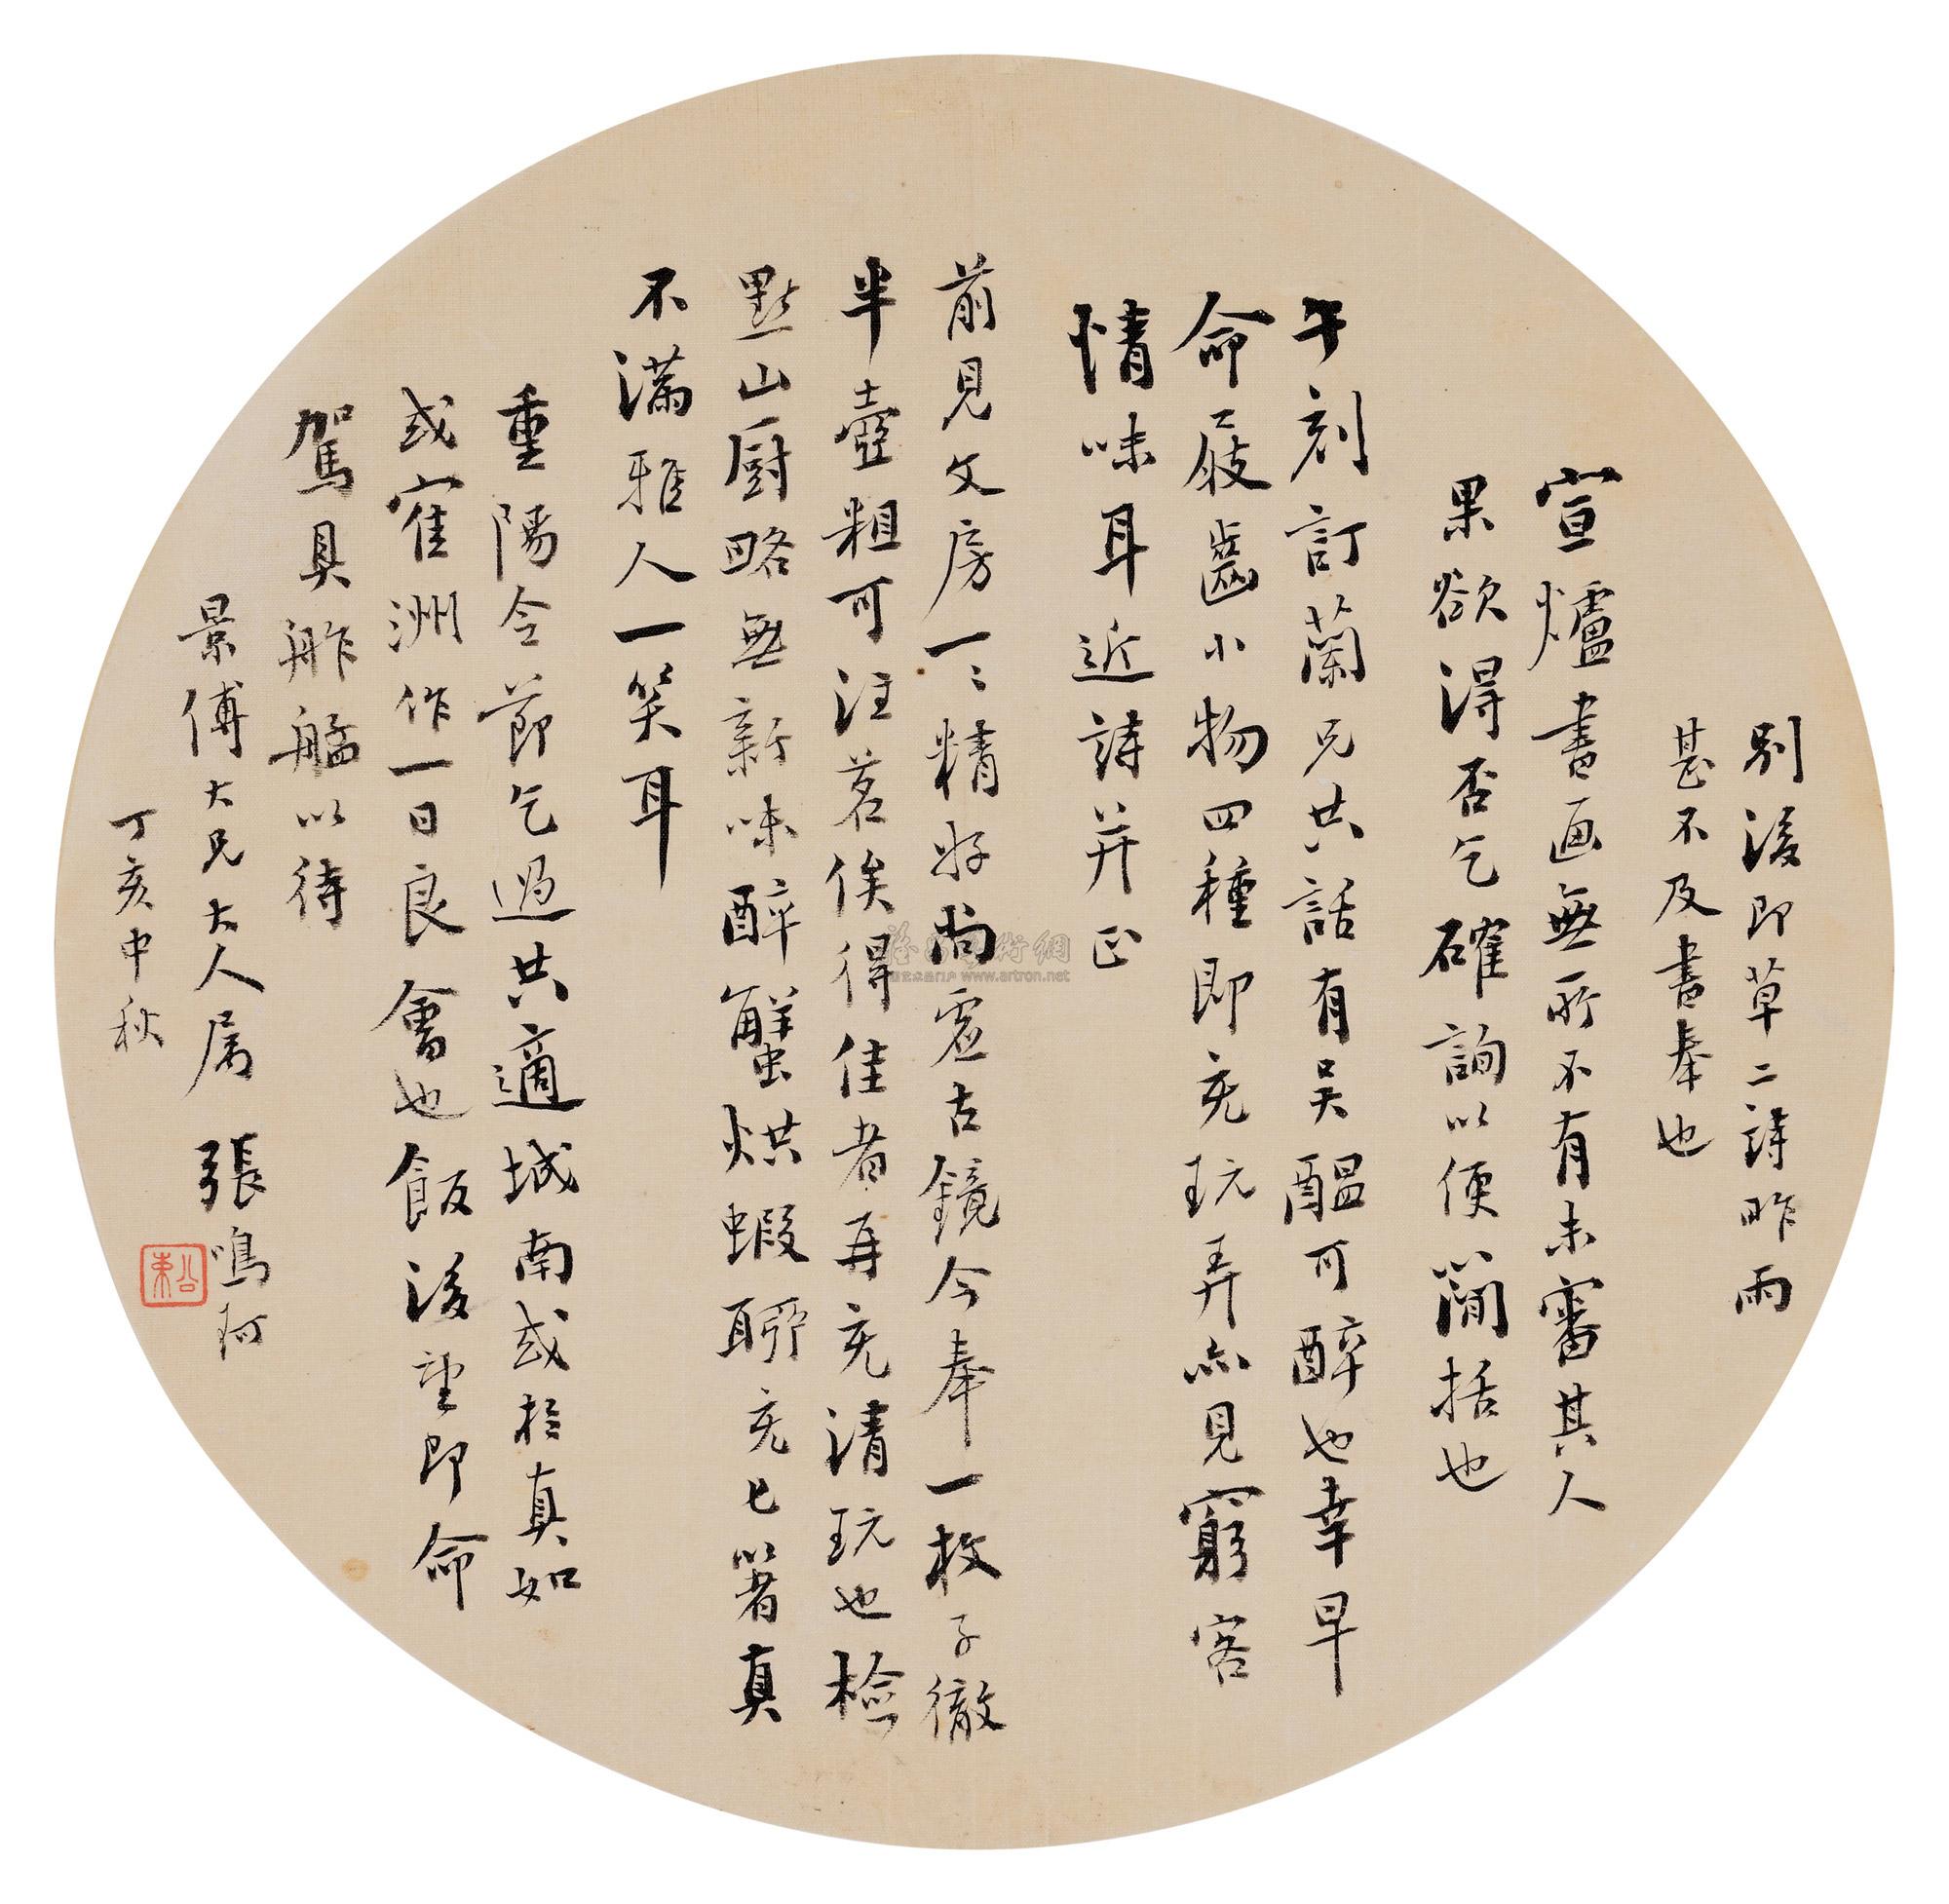 別後即草二詩昨雨
甚不及書奉也
宣爐書画無所不有未審其人
果欲得否乞確詢以便簡括也
午刻訂蘭兄共話有吴醞可醉也幸早
命屐齒小物四種即充玩弄亦見窮客
情味耳近詩并正
前見文房一〻精好尚虛古鏡今奉一枚子徹
半壺粗可注茗俟得佳者再充清玩也檢
點山廚略無新味醉蟹烘蝦聊充匕箸真
不滿雅人一笑耳
重陽令節乞過共適城南或於真如
或寉洲作一日良會也飯後望即命
駕具舴艋以待
景傅大兄大人属 張鳴珂
丁亥中秋
公束
www.artron.net